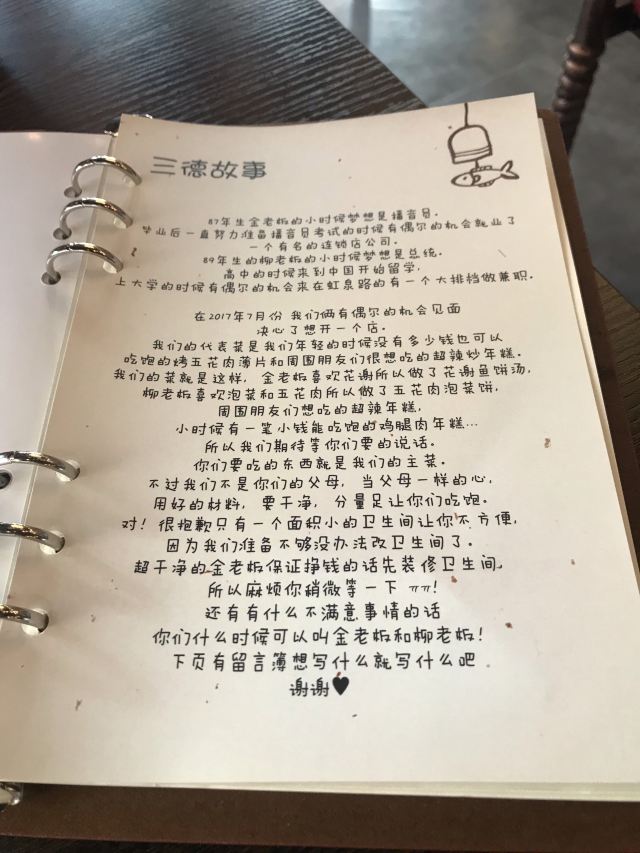 三德故事
87年生金老板的小时候梦想是播音员.
毕业后一直努力准备播音员考试的时候有偶尔的机会就业了
一个有名的连锁店公司.
89年生的柳老板的小时候梦想是总统.
高中的时候来到中国开始留学,
上大学的时候有偶尔的机会来在虹泉路的有一个大排档做兼职.
在2017年7月份 我们俩有偶尔的机会见面
决心了想开一个店.
我们的代表菜是我们年轻的时候没有多少钱也可以
吃饱的烤五花肉薄片和周围朋友们很想吃的超辣炒年糕.
我们的菜就是这样, 金老板喜欢花谢所以做了花谢鱼饼汤,
柳老板喜欢泡菜和五花肉所以做了五花肉泡菜饼,
周围朋友们想吃的超辣年糕,
小时候有一笔小钱能吃饱的鸡腿肉年糕...
所以我们期待等你们要的说话.
你们要吃的东西就是我们的主菜.
不过我们不是你们的父母, 当父母一样的心,
用好的材料, 要干净, 分量足让你们吃饱.
对! 很抱歉只有一个面积小的卫生间让你不方便,
因为我们准备不够没办法改卫生间了.
超干净的金老板保证挣钱的话先装修卫生间,
所以麻烦你稍微等一下 ㅠㅠ!
还有有什么不满意事情的话
你们什么时候可以叫金老板和柳老板!
下页有留言簿想写什么就写什么吧.
谢谢♥